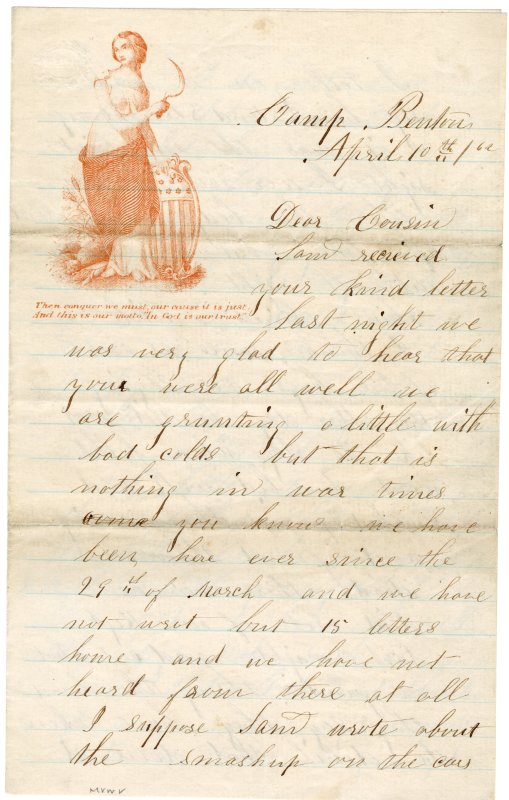 Camp Benton
April 10th /62
Dear Cousin
Sam recieved
your kind letter
last night we
was very glad to hear that
you were all well we
are grunting a little with
bad colds but that is
nothing in war times
you know we have
been here ever since the
29th of March and we have
not wrot but 15 letters
home and we have not
heard from there at all
I suppose Sam wrote about
the smashup on the cars
Then conquer we must, our cause it is just,
And this is our motto, "In God is our trust."